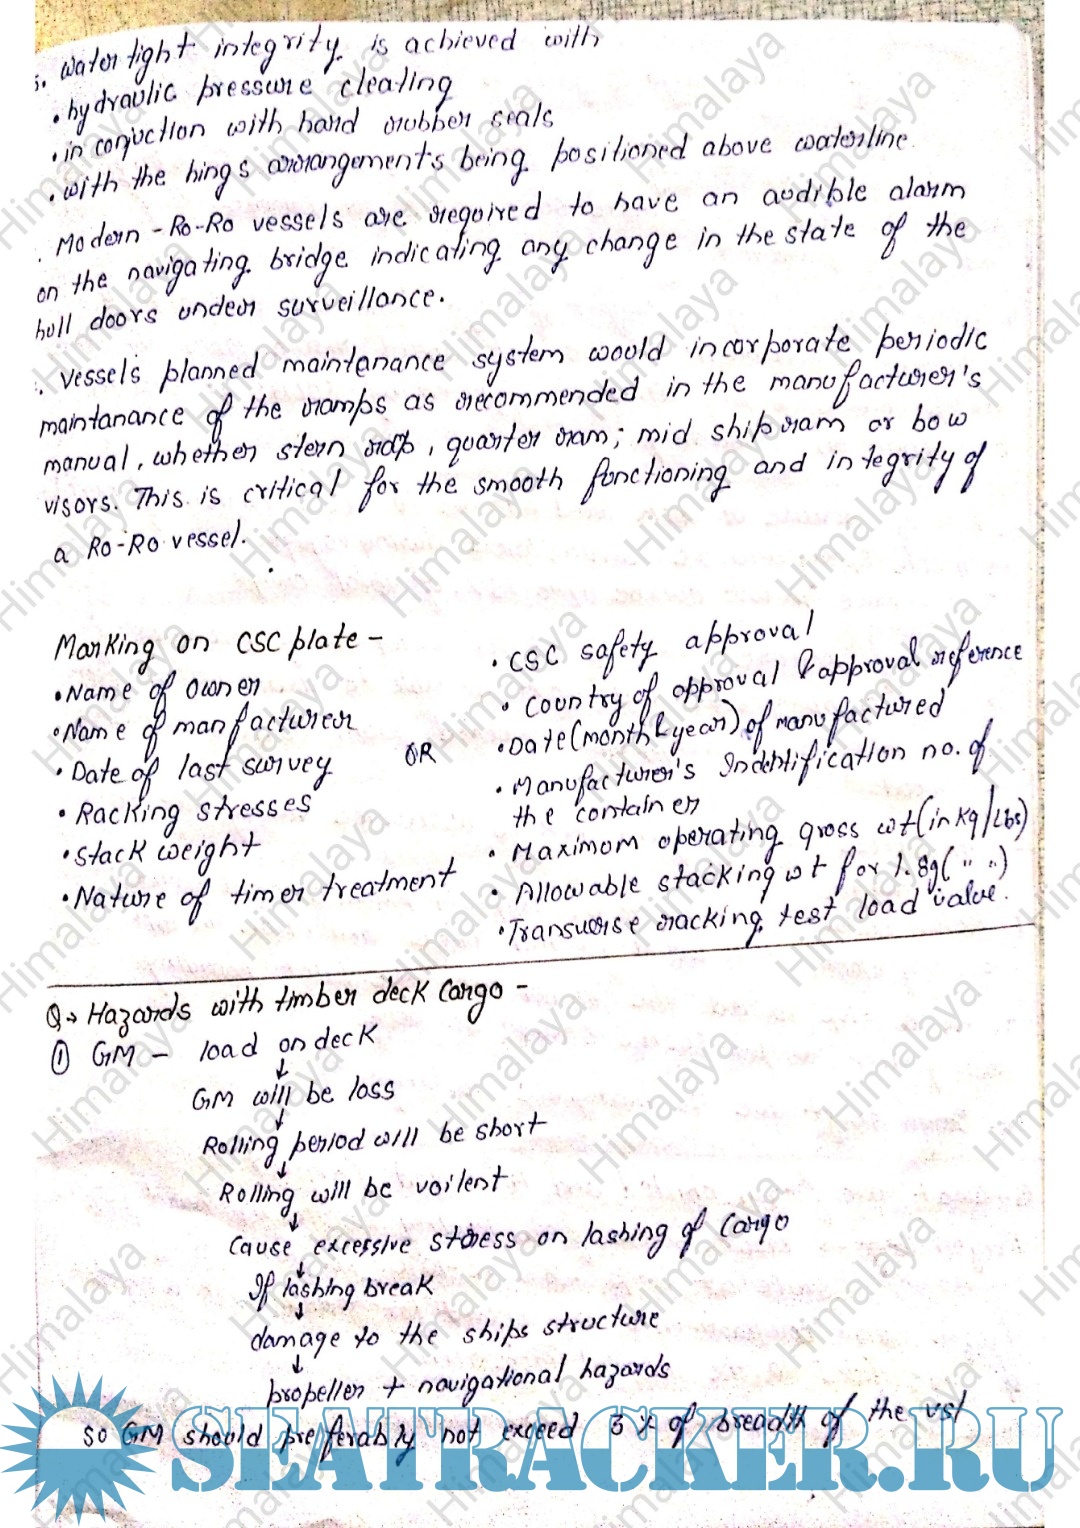 5. water tight integrity is achieved with
• hydraulic pressure cleating
• in conjuction with hard rubber seals
• with the hings arrangements being positioned above waterline
. Modern - Ro-Ro vessels are required to have an audible alarm
on the navigating bridge indicating any change in the state of the
hull doors under surveillance.
. vessels planned maintenance system would incorporate periodic
maintanance of the ramps as recommended in the manufacturer's
manual, whether stern rap, quarter ram; mid ship ram or bow
visors. This is critical for the smooth functioning and integrity of
a Ro-Ro vessel.
Marking on CSC plate -
• Name of owner
• Name of manfacturer
• Date of last survey
• Racking stresses
• stack weight
• Nature of timer treatment
OR
• CSC safety approval
• country of approval & approval reference
• Date (month & year) of manufactured
• Manufacturer's Indentification no. of
the container
• Maximum operating gross wt (in kg/Lbs)
• Allowable stacking wt for 1.8g ( " " )
• Transverse racking test load value.
Q→ Hazards with timber deck cargo -
① GM - load on deck
↓
GM will be loss
↓
Rolling period will be short
↓
Rolling will be voilent
↓
cause excessive stress on lashing of cargo
↓
If lashing break
↓
damage to the ships structure
↓
propeller + navigational hazards
so GM should preferably not exceed 3% of breadth of the vsl
SEATRACKER.RU
Himalaya